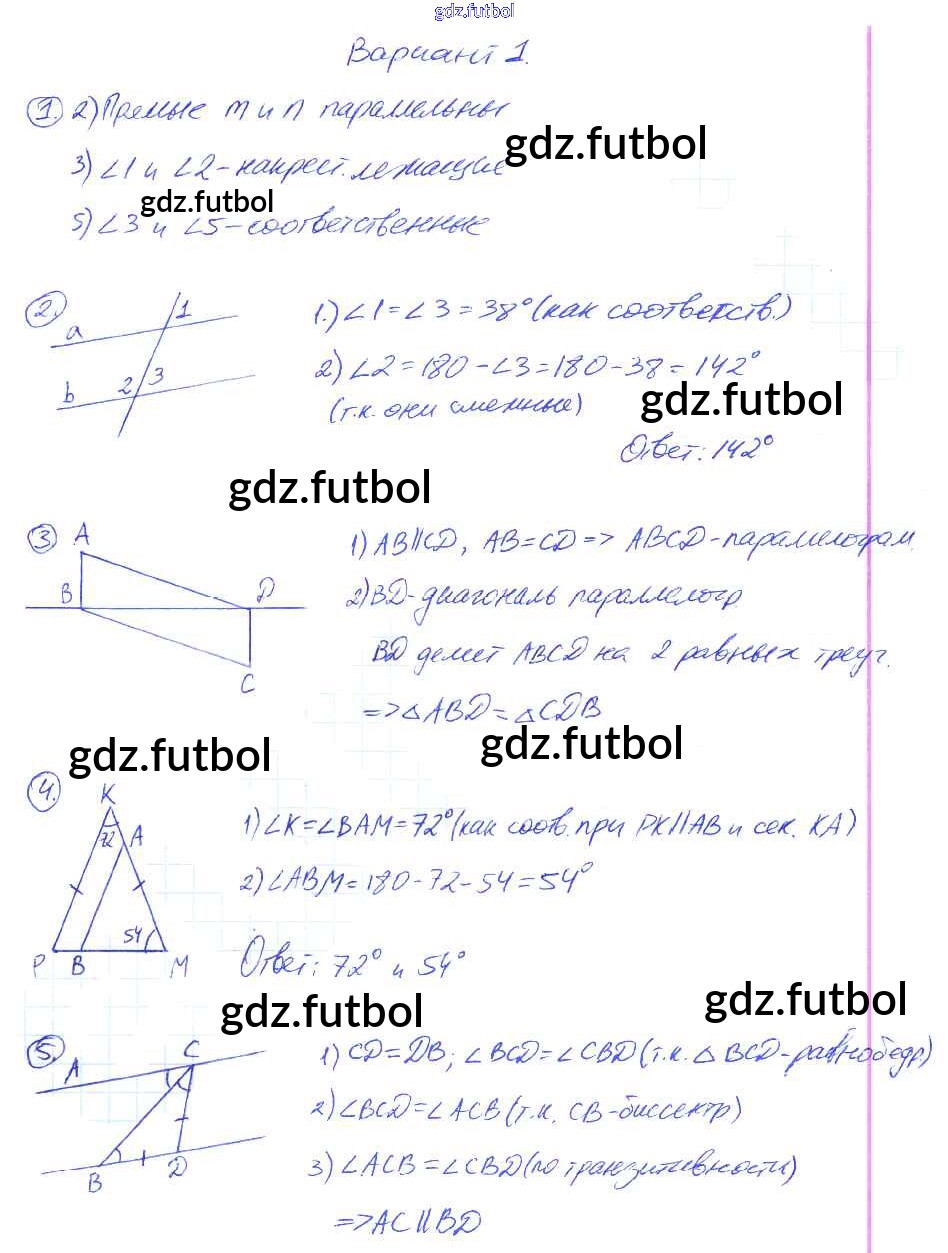 gdz.futbol
Вариант 1.
1. 2) Прямые m и n параллельны
gdz.futbol
3) ∠1 и ∠2 - накрест. лежащие
gdz.futbol
5) ∠3 и ∠5 - соответственные
2. a b 1 2 3
1.) ∠1 = ∠3 = 38° (как соответств.)
2) ∠2 = 180 - ∠3 = 180 - 38 = 142°
(т.к. они смежные)
gdz.futbol
Ответ: 142°
gdz.futbol
3 A B D C
1) AB||CD, AB = CD => ABCD - параллелограм.
2) BD - диагональ параллелогр.
BD делит ABCD на 2 равных треуг.
=> △ABD = △CDB
gdz.futbol
gdz.futbol
4. K 72 A 54 P B M
1) ∠K = ∠BAM = 72° (как соотв. при PK||AB и сек. KA)
2) ∠ABM = 180 - 72 - 54 = 54°
Ответ: 72° и 54°
gdz.futbol
gdz.futbol
5. A C B D
1) CD = DB; ∠BCD = ∠CBD (т.к. △BCD - равнобедр)
2) ∠BCD = ∠ACB (т.к. CB - биссектр)
3) ∠ACB = ∠CBD (по транзитивности)
=> AC||BD